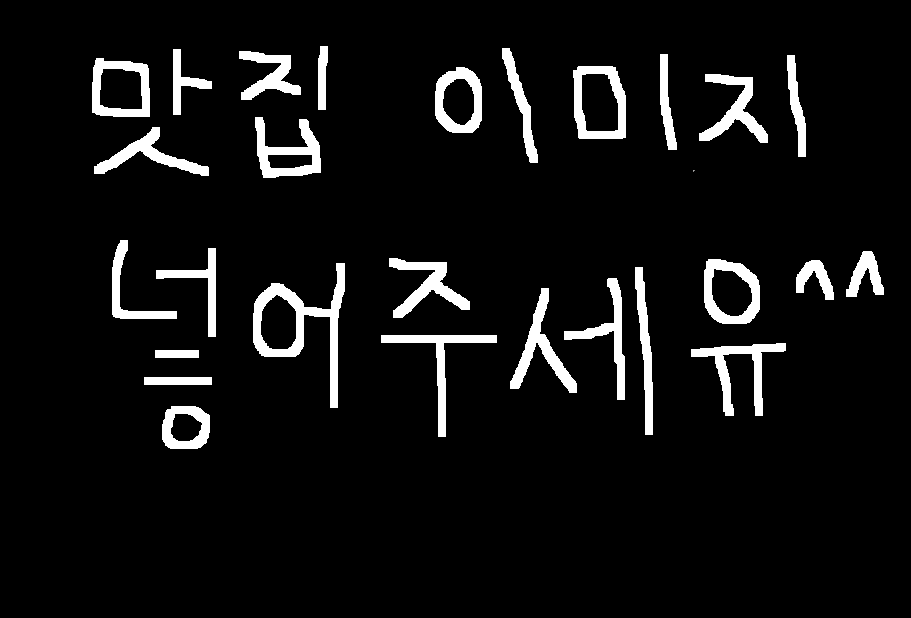 맛집 이미지
넣어주세유^^